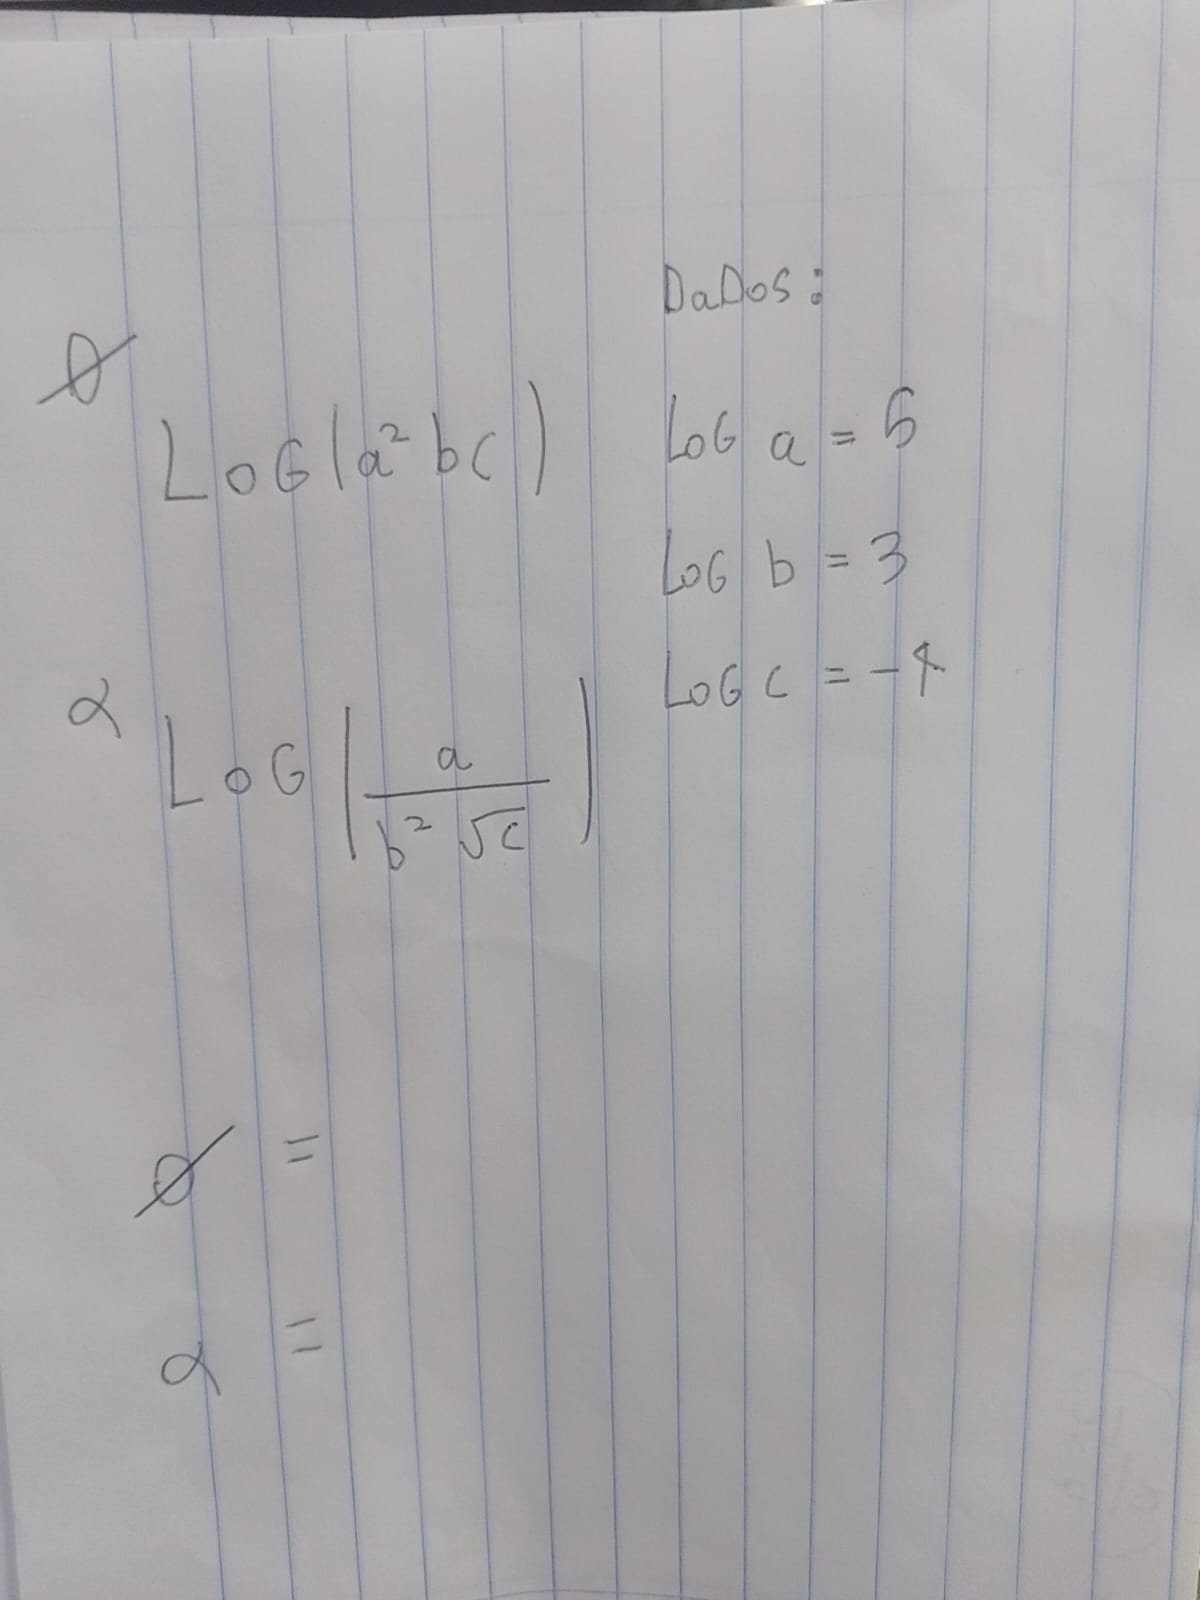 DaDos:
Ø
LOG(a² bc)
LOG a = 5
LOG b = 3
LOG c = -4
α
LOG(a / b² √c)
Ø =
α =